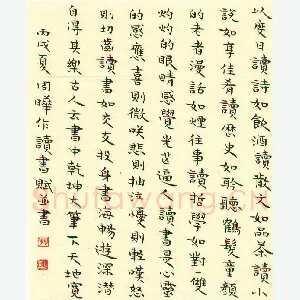 以度日讀詩如飲酒讀散文如品茶讀小
說如享佳肴讀歷史如聆聽鶴髮童顏
的老者漫話如煙往事讀哲學如對一雙
灼灼的眼睛感覺光芒逼人讀書是心靈
的感應喜則微咲悲則抽泣憂則輕嘆怒
則切齒讀書如交友投身書海暢遊深潛
自得其樂古人云書中乾坤大筆下天地寬
丙戌夏周曄作讀書賦並書
Shufawang.cn